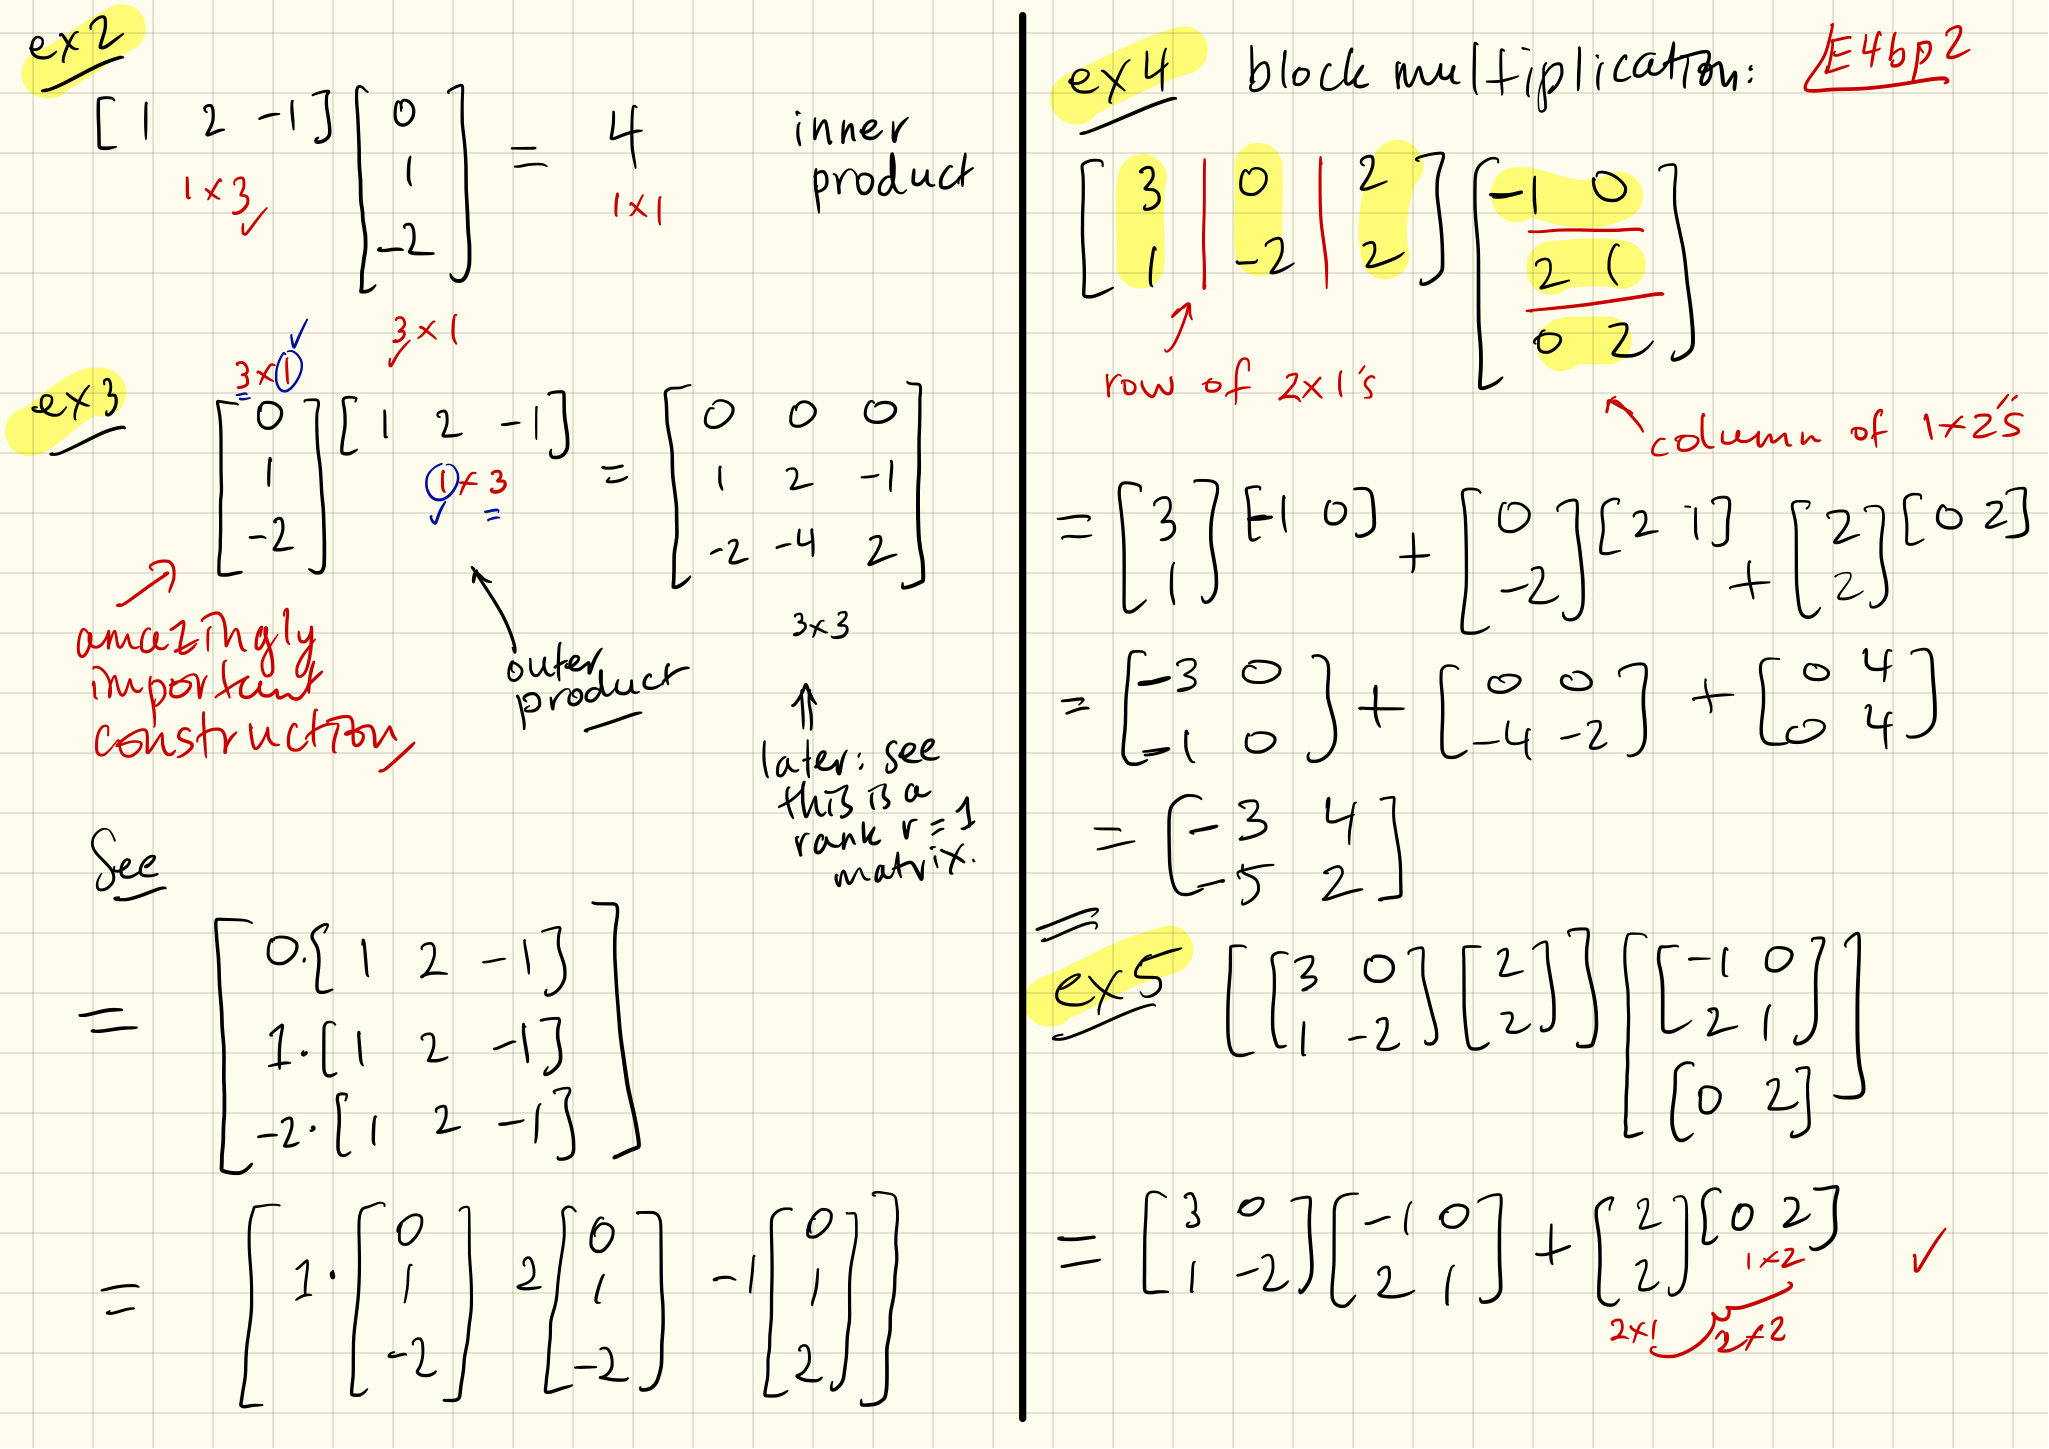 ex2
[ 1 2 -1 ] [ 0 1 -2 ] = 4 inner product
1×3 ✓
1×1
3×1
✓
ex3
3×1 ✓
[ 0 1 -2 ] [ 1 2 -1 ] = [ 0 0 0
1 2 -1
-2 -4 2 ]
1×3
✓
3×3
amazingly
important
construction
outer
product
later: see
this is a
rank r=1
matrix.
See
= [ 0·[ 1 2 -1 ]
1·[ 1 2 -1 ]
-2·[ 1 2 -1 ] ]
= [ 1·[ 0 1 -2 ] 2[ 0 1 -2 ] -1[ 0 1 2 ] ]
ex4 block multiplication: E4bp2
[ 3 | 0 | 2
1 | -2 | 2 ] [ -1 0
2 1
0 2 ]
row of 2×1's
column of 1×2's
= [ 3 1 ] [ -1 0 ] + [ 0 -2 ] [ 2 1 ] + [ 2 2 ] [ 0 2 ]
= [ -3 0
-1 0 ] + [ 0 0
-4 -2 ] + [ 0 4
0 4 ]
= [ -3 4
-5 2 ]
ex5 [ [ 3 0
1 -2 ] [ 2
2 ] ] [ [ -1 0
2 1 ]
[ 0 2 ] ]
= [ 3 0
1 -2 ] [ -1 0
2 1 ] + [ 2
2 ] [ 0 2 ] ✓
1×2
2×1 2×2